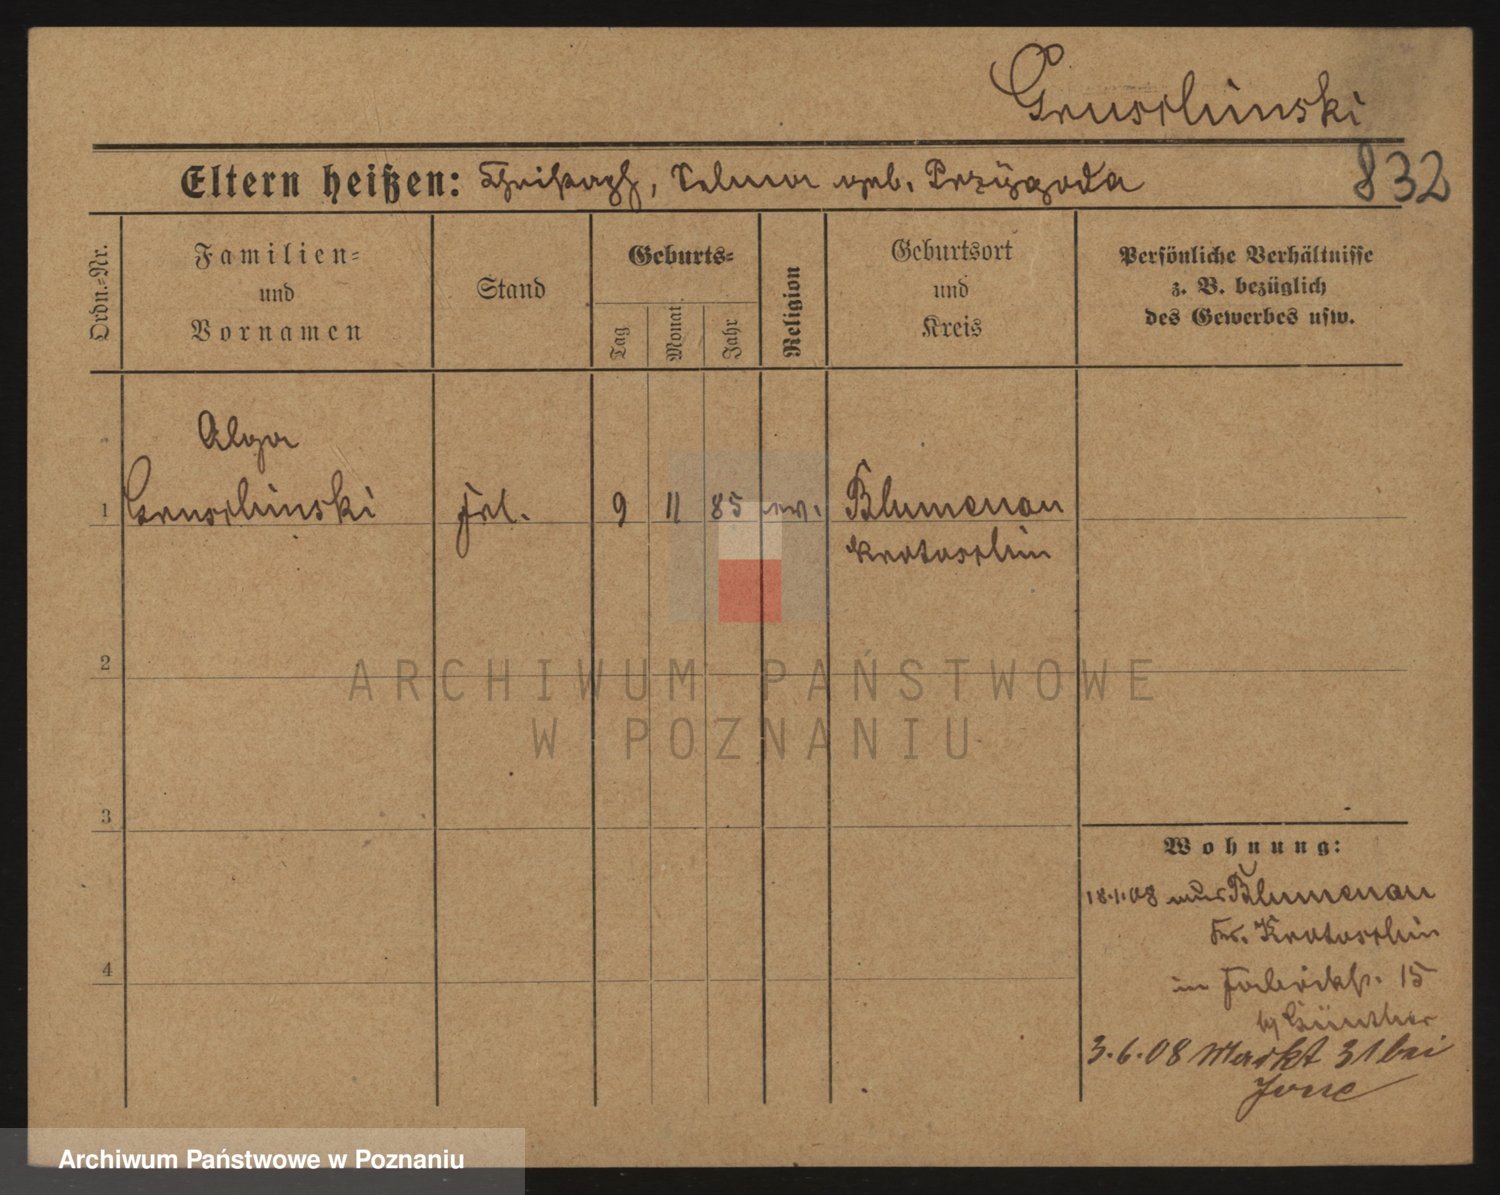 Gruschinski
832
Eltern heißen: Christoph, Selma geb. Przygoda
Ordn.-Nr.
Familien-
und
Vornamen
Stand
Geburts-
Tag
Monat
Jahr
Religion
Geburtsort
und
Kreis
Persönliche Verhältnisse
z. B. bezüglich
des Gewerbes usw.
Olga
1 Gruschinski Frl. 9 11 85 ev. Blumenau
Krotoschin
2
3
4
ARCHIWUM PAŃSTWOWE
W POZNANIU
Wohnung:
18.1.08 aus Blumenau
Kr. Krotoschin
in Fabrikstr. 15
bei Günther
3.6.08 Markt 31 bei
Archiwum Państwowe w Poznaniu